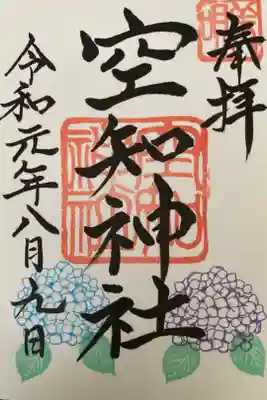 奉拝
空知神社
令和元年八月九日